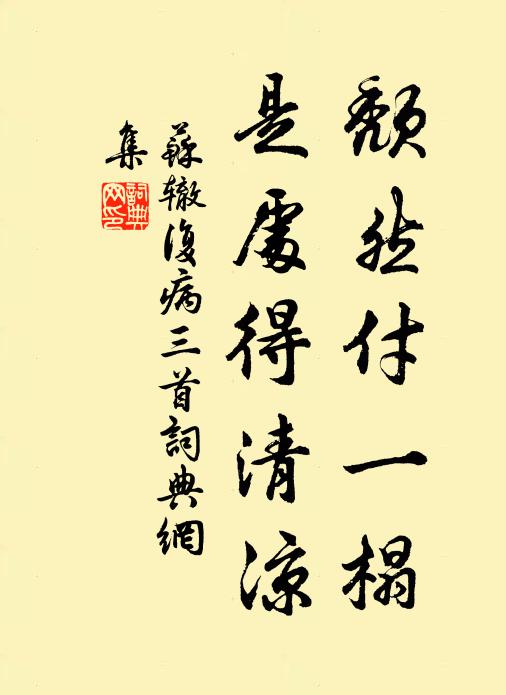 頹然付一榻
是處得清涼
蘇辙復病三首詞典網
集
詞典
网印